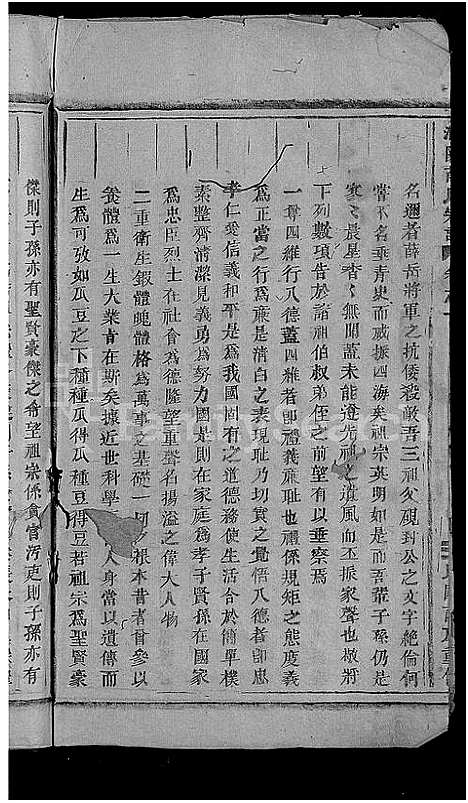 名邇者薛岳將軍之抗倭殺敵吾三祖父硯封公之文字絕倫何
嘗不名垂青史而威振四海矣祖宗英明如是而吾輩子孫仍是
寥寥晨星杳杳無聞蓋未能遵先祖之遺風而丕振家聲也椒將
下列數項告於諸祖伯叔弟侄之前望有以垂察焉
一尊四維行八德蓋四維者即禮義廉耻也禮係規矩之態度義
爲正當之行爲廉是清白之表現耻乃切實之覺悟八德者即忠
孝仁愛信義和平是爲我國固有之道德務使生活合於簡單樸
素整齊清潔見義勇爲努力國是則在家庭爲孝子賢孫在國家
爲忠臣烈士在社會爲德隆望重聲名揚溢之偉大人物
二重衛生鍛體魄體格爲萬事之基礎一切之根本昔者曾參以
養體爲一生大業肯在斯矣據近世科學 人身當以遺傳而
生爲可攷如瓜豆之下種種瓜得瓜種豆得豆若祖宗爲聖賢豪
傑則子孫亦有聖賢豪傑之希望祖宗係貪官污吏則子孫亦有